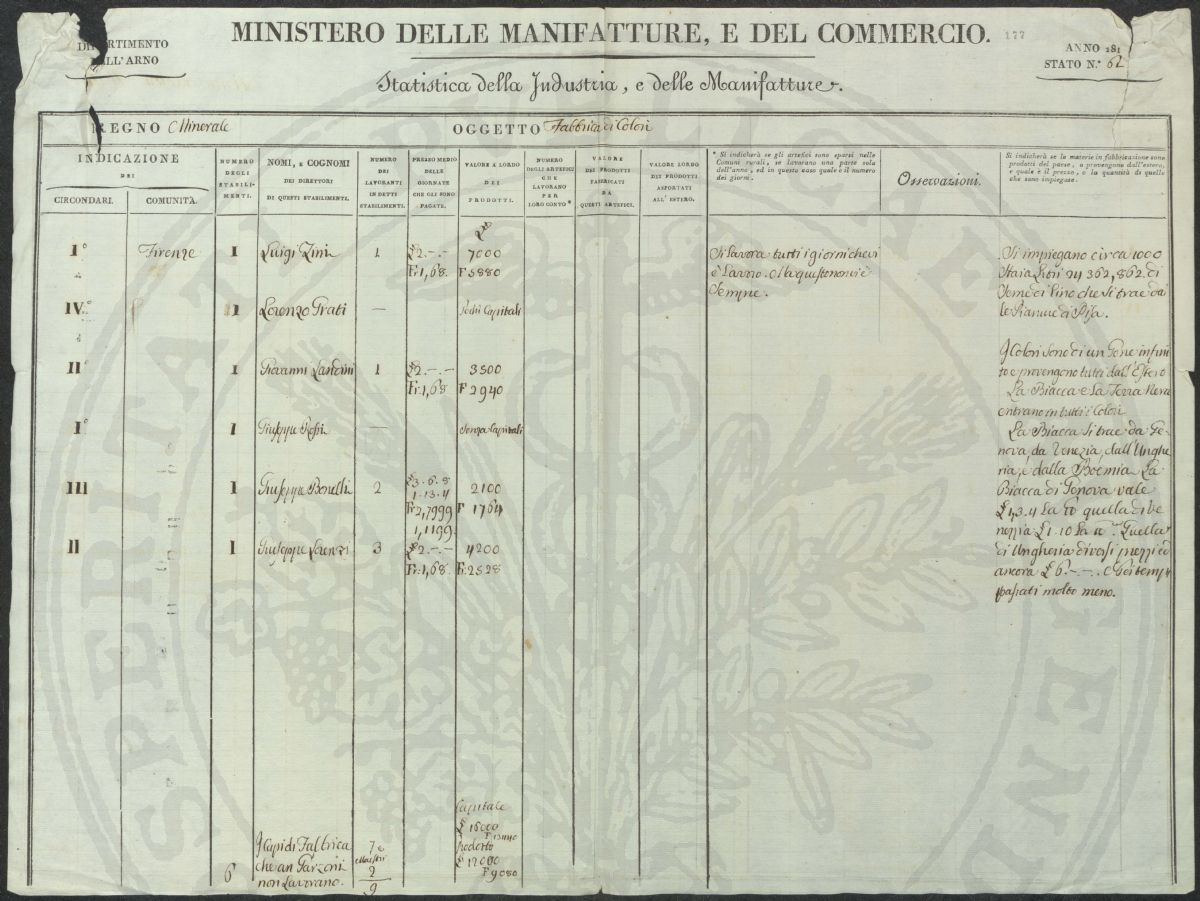 MINISTERO DELLE MANIFATTURE, E DEL COMMERCIO.
177
DIPARTIMENTO
DELL'ARNO
ANNO 181
STATO N.° 62
Statistica della Industria, e delle Manifatture.
REGNO Minerale
OGGETTO Fabbrica di Colori
INDICAZIONE
DEI
CIRCONDARI. COMUNITÀ.
NUMERO
DEGLI
STABILI-
MENTI.
NOMI, e COGNOMI
DEI DIRETTORI
DI QUESTI STABILIMENTI.
NUMERO
DEI
LAVORANTI
IN DETTI
STABILIMENTI.
PREZZO MEDIO
DELLE
GIORNATE
CHE GLI SONO
PAGATE.
VALORE A LORDO
DEI
PRODOTTI.
NUMERO
DEGLI ARTEFICI
CHE
LAVORANO
PER
LORO CONTO *
VALORE
DEI PRODOTTI
FABBRICATI
DA
QUESTI ARTEFICI.
VALORE LORDO
DEI PRODOTTI
ASPORTATI
ALL' ESTERO.
* Si indicherà se gli artefici sono sparsi nelle
Comuni rurali, se lavorano una parte sola
dell'anno, ed in questo caso quale è il numero
dei giorni.
Osservazioni.
Si indicherà se le materie in fabbricazione sono
prodotti del paese, o provengono dall'estero,
e quale è il prezzo, e la quantità di quelle
che sono impiegate.
I° Firenze 1 Luigi Zini 1 £2.-.- 7000
Fr. 1,68 F 5880
Si lavora tutti i giorni che vi
è Lavoro. Ma questo non vi è
Sempre.
Si impiegano circa 1000
Staia Litri 24 362,862 di
Seme di Lino che si trae da
le Pianure di Pisa.
IV° 1 Lorenzo Prati — Pochi Capitali
II° 1 Giovanni Landini 1 £2.-.- 3500
Fr. 1,68 F 2940
I Colori sono di un Gene infini
to e provengono tutti dall'Estero
La Biacca e la Terra Nera
entrano in tutti i Colori
I° 1 Giuseppe Rossi — Senza Capitali
La Biacca si trae da Ge-
nova, da Venezia, dall'Unghe
ria, e dalla Boemia. La
III 1 Giuseppe Bonelli 2 £3.6.8 2100
1.13.4
Fr. 2,7999 F 1764
1,1199
Biacca di Genova vale
£ 1,3.4 la ℔ quella di Ve
nezia £ 1.10 la
II 1 Giuseppe Lorenzi 3 £2.-.- 4200
Fr. 1,68 Fr. 2528
Quella
di Ungheria diversi prezzi ed
ancora £ 6.-.-. e Gei tempi
passati molto meno.
6
I Capi di Fabbrica
che an Garzoni
non Lavorano.
7 e
Maestri
2
9
Capitale
£ 16000
Prodotto
£ 12000
F 9080